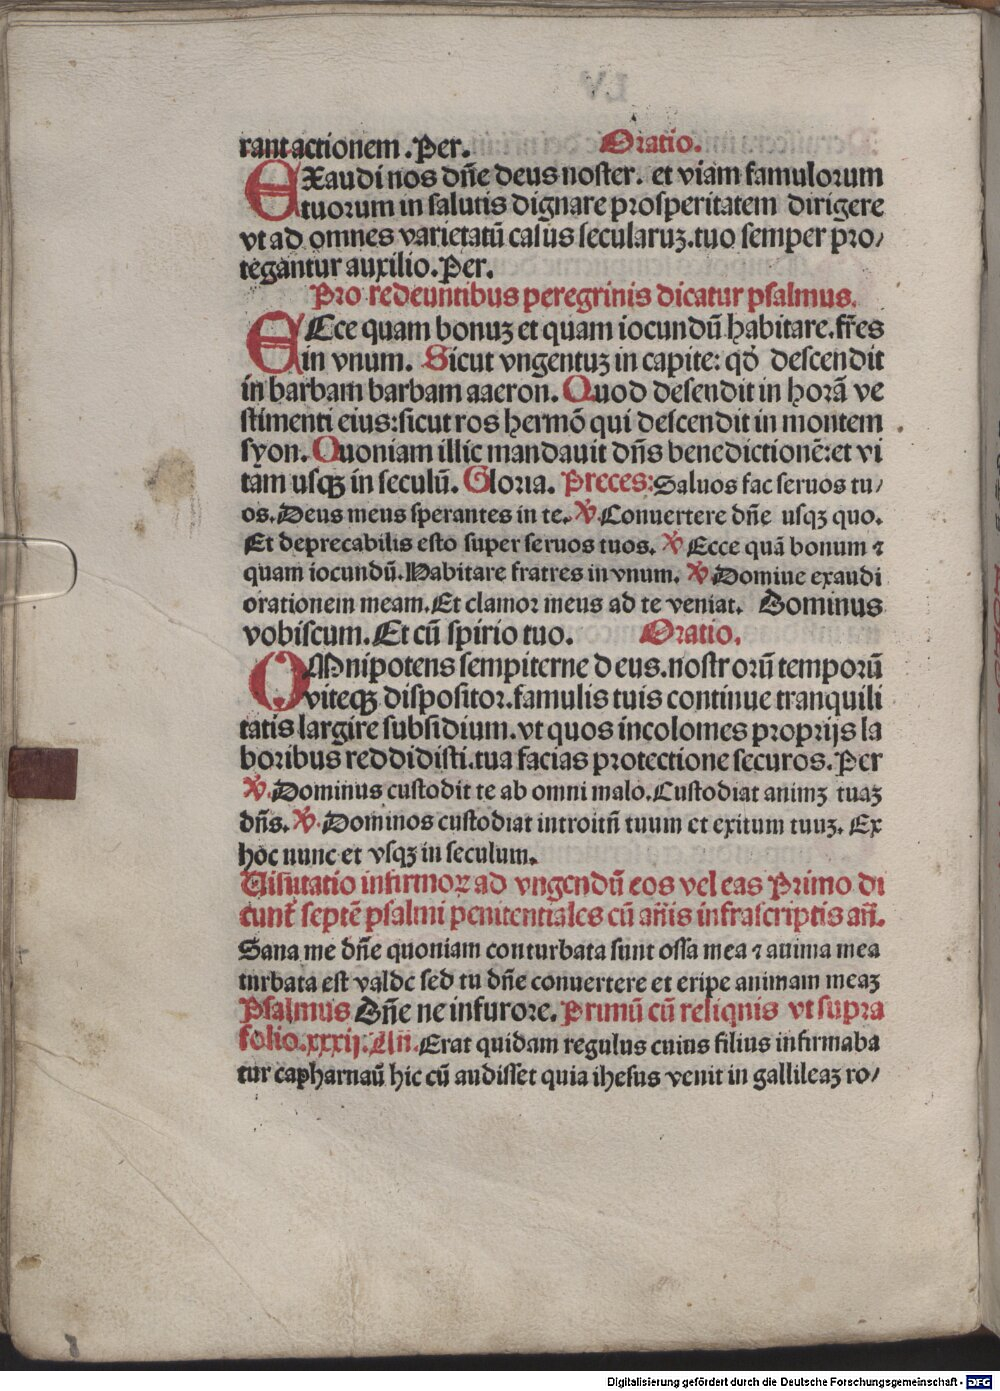 rant actionem .Per. Oratio.
EXaudi nos dn̄e deus noster. et viam famulorum
tuorum in salutis dignare prosperitatem dirigere
vt ad omnes varietatū casus secularuꝫ.tuo semper pro/
tegantur auxilio.Per.
Pro redeuntibus peregrinis dicatur psalmus.
ECce quam bonuꝫ et quam iocundū habitare.fr̄es
in vnum. Sicut vngentuꝫ in capite: qđ descendit
in barbam barbam aaeron. Quod desendit in horā ve
stimenti eius:sicut ros hermō qui descendit in montem
syon. Quoniam illic mandauit dn̄s benedictionē:et vi
tam usqꝫ in seculū. Gloria. Preces: Saluos fac seruos tu/
os.Deus meus sperantes in te. ℣.Conuertere dn̄e usqꝫ quo.
Et deprecabilis esto super seruos tuos. ℣ Ecce quā bonum ⁊
quam iocundū.Habitare fratres in vnum. ℣.Domine exaudi
orationem meam.Et clamor meus ad te veniat. Dominus
vobiscum.Et cū spirio tuo. Oratio.
OMnipotens sempiterne deus.nostrorū temporū
viteqꝫ dispositor.famulis tuis continue tranquili
tatis largire subsidium.vt quos incolomes proprijs la
boribus reddidisti.tua facias protectione securos.Per
℣.Dominus custodit te ab omni malo.Custodiat animꝫ tuaꝫ
dn̄s. ℣.Dominos custodiat introitū tuum et exitum tuuꝫ. Ex
hoc nunc et vsqꝫ in seculum.
Visutatio infirmoꝝ ad vngendū eos vel eas Primo di
cunt̄ septē psalmi penitentiales cū an̄is infrascriptis an̄.
Sana me dn̄e quoniam conturbata sunt ossa mea ⁊ anima mea
turbata est valde sed tu dn̄e conuertere et eripe animam meaꝫ
Psalmus Dn̄e ne infurore. Primū cū reliquis vt supra
folio.xxxij. An̄. Erat quidam regulus cuius filius infirmaba
tur capharnaū hic cū audisset quia ihesus venit in gallileaꝫ ro/
Digitalisierung gefördert durch die Deutsche Forschungsgemeinschaft - DFG